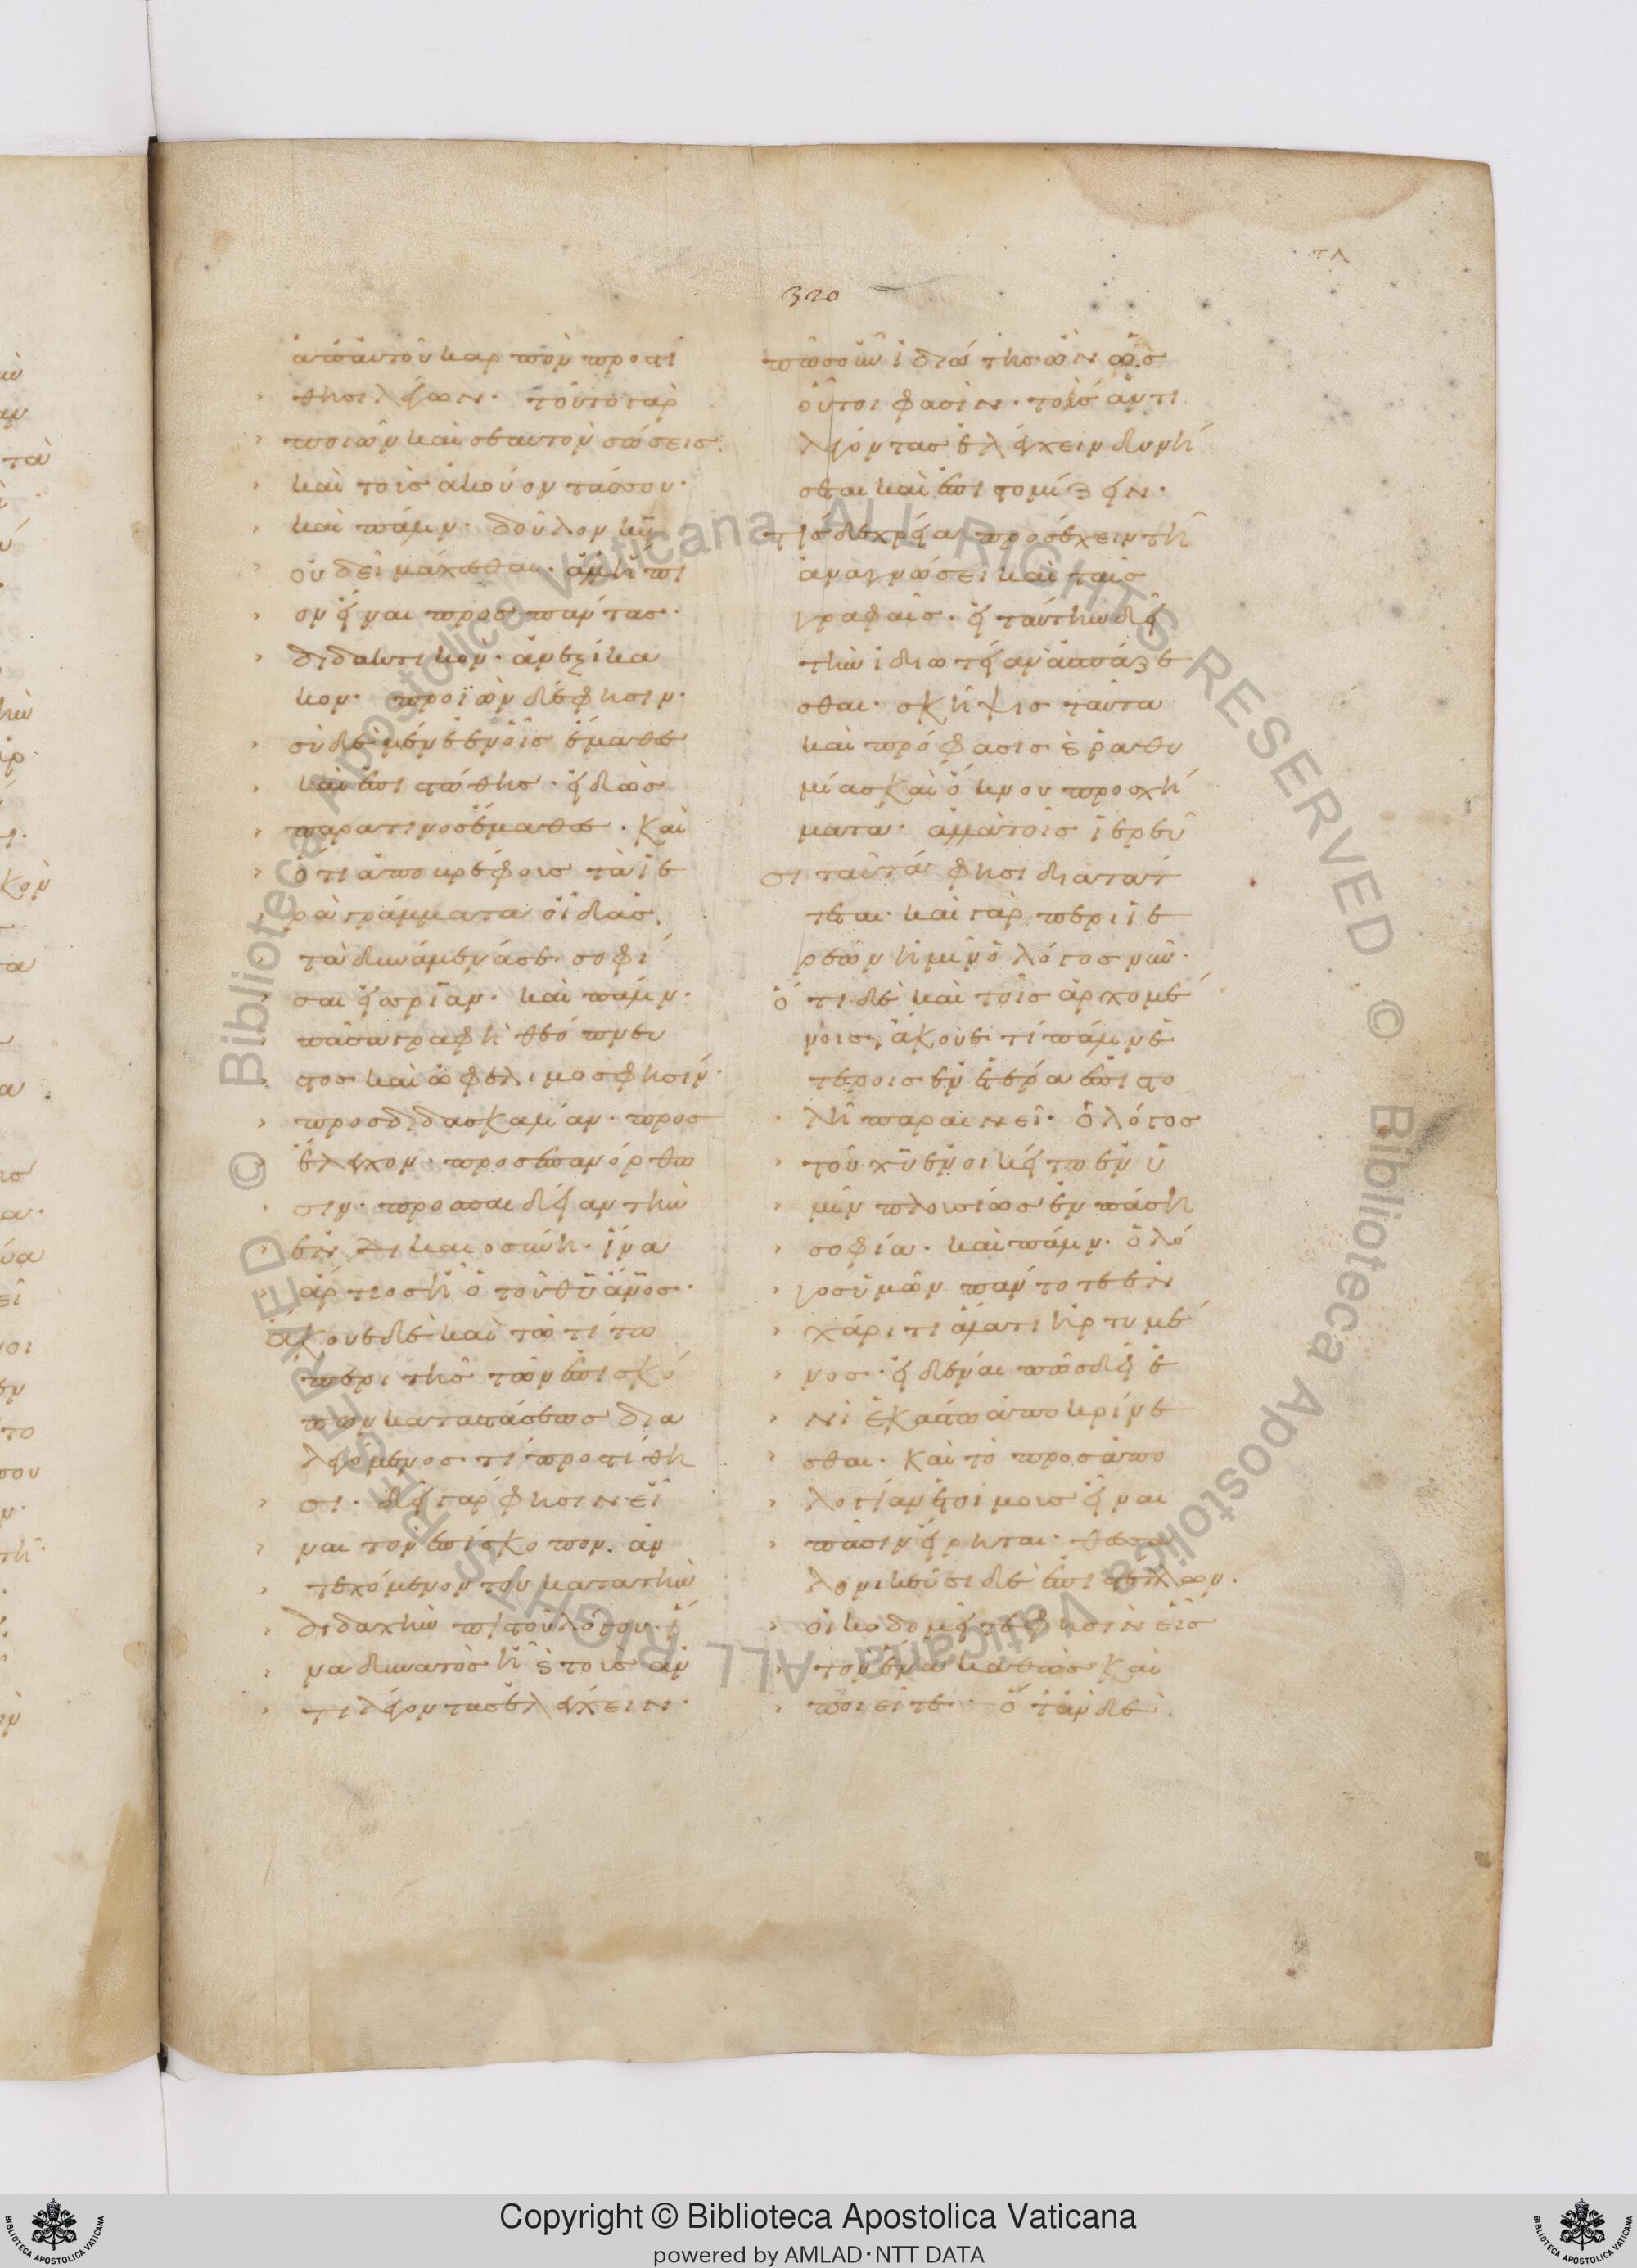 τλ
320
ἀπ' αὐτοῦ καρπὸν προστί
θησι λέγων· τοῦτο γὰρ
ποιῶν καὶ σεαυτὸν σώσεις
καὶ τοὺς ἀκούοντάς σου·
καὶ πάλιν· δοῦλον κυ
οὐ δεῖ μάχεσθαι· ἀλλ' ἤπι
ον εἶναι πρὸς πάντας·
διδακτικὸν· ἀνεξίκα
κον· προϊὼν δέ φησιν·
σὺ δὲ μένε ἐν οἷς ἔμαθες
καὶ ἐπιστώθης· εἰδὼς
παρὰ τίνος ἔμαθες· καὶ
ὅτι ἀπὸ βρέφους τὰ ἱε
ρὰ γράμματα οἶδας.
τὰ δυνάμενά σε σοφί
σαι εἰς σωτηρίαν· καὶ πάλιν·
πᾶσα γραφὴ θεόπνευ
στος καὶ ὠφέλιμος φησὶν·
πρὸς διδασκαλίαν· πρὸς
ἔλεγχον· πρὸς ἐπανόρθω
σιν· πρὸς παιδείαν τὴν
ἐν δικαιοσύνη· ἵνα
ἄρτιος ἦ ὁ τοῦ θυ ἄνος·
ἄκουε δὲ καὶ τῶ τίτω
περὶ τῆς τῶν ἐπισκό
πων καταστάσεως δια
λεγόμενος τί προστίθη
σι· δεῖ γὰρ φησὶν εἶ
ναι τὸν ἐπίσκοπον. ἀν
τεχόμενον τοῦ κατὰ τὴν
διδαχὴν πιστοῦ λόγου· ἵ
να δυνατὸς ἦ καὶ τοὺς ἀν
τιλέγοντας ἐλέγχειν·
πῶς οὖν ἰδιώτης ὢν ὡς
οὗτοι φασὶν· τοὺς ἀντι
λέγοντας ἐλέγχειν δυνή
σεται καὶ ἐπιστομίζειν·
τίς δὲ χρεία προσέχειν τῆ
ἀναγνώσει καὶ ταῖς
γραφαῖς· εἰ ταύτην δεῖ
τὴν ἰδιωτείαν ἀσπάζε
σθαι· σκῆψις ταῦτα
καὶ πρόφασις καὶ ῥαθυ
μίας καὶ ὄκνου προσχή
ματα· ἀλλὰ τοῖς ἱερεῦ
σι ταῦτά φησι διατάτ
τεται· καὶ γὰρ περὶ ἱε
ρέων ἡμῖν ὁ λόγος νῦν·
ὅτι δὲ καὶ τοῖς ἀρχομέ
νοις, ἄκουε τί πάλιν ἑ
τέροις ἐν ἑτέρα ἐπιστο
λῆ παραινεῖ· ὁ λόγος
τοῦ χυ ἐνοικείτω ἐν ὑ
μῖν πλουσίως ἐν πάση
σοφία· καὶ πάλιν· ὁ λό
γος ὑμῶν πάντοτε ἐν
χάριτι ἅλατι ἠρτυμέ
νος· εἰδέναι πῶς δεῖ ἑ
νὶ ἑκάστω ἀποκρίνε
σθαι· καὶ τὸ πρὸς ἀπο
λογίαν ἑτοίμους εἶναι
πᾶσιν εἴρηται· θεσσα
λονικεῦσι δὲ ἐπιστέλλων·
οἰκοδομεῖτε φησὶν εἷς
τὸν ἕνα καθὼς καὶ
ποιεῖτε· ὅταν δὲ